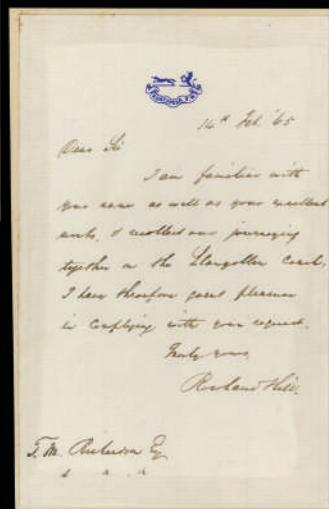 14th Feb. '65
Dear Sir
I am familiar with
your name as well as your excellent
works. I recollect our journeying
together on the Llangollen coach.
I have therefore great pleasure
in complying with your request.
Truly yours,
Rowland Hill.
T. M. Richardson Esq